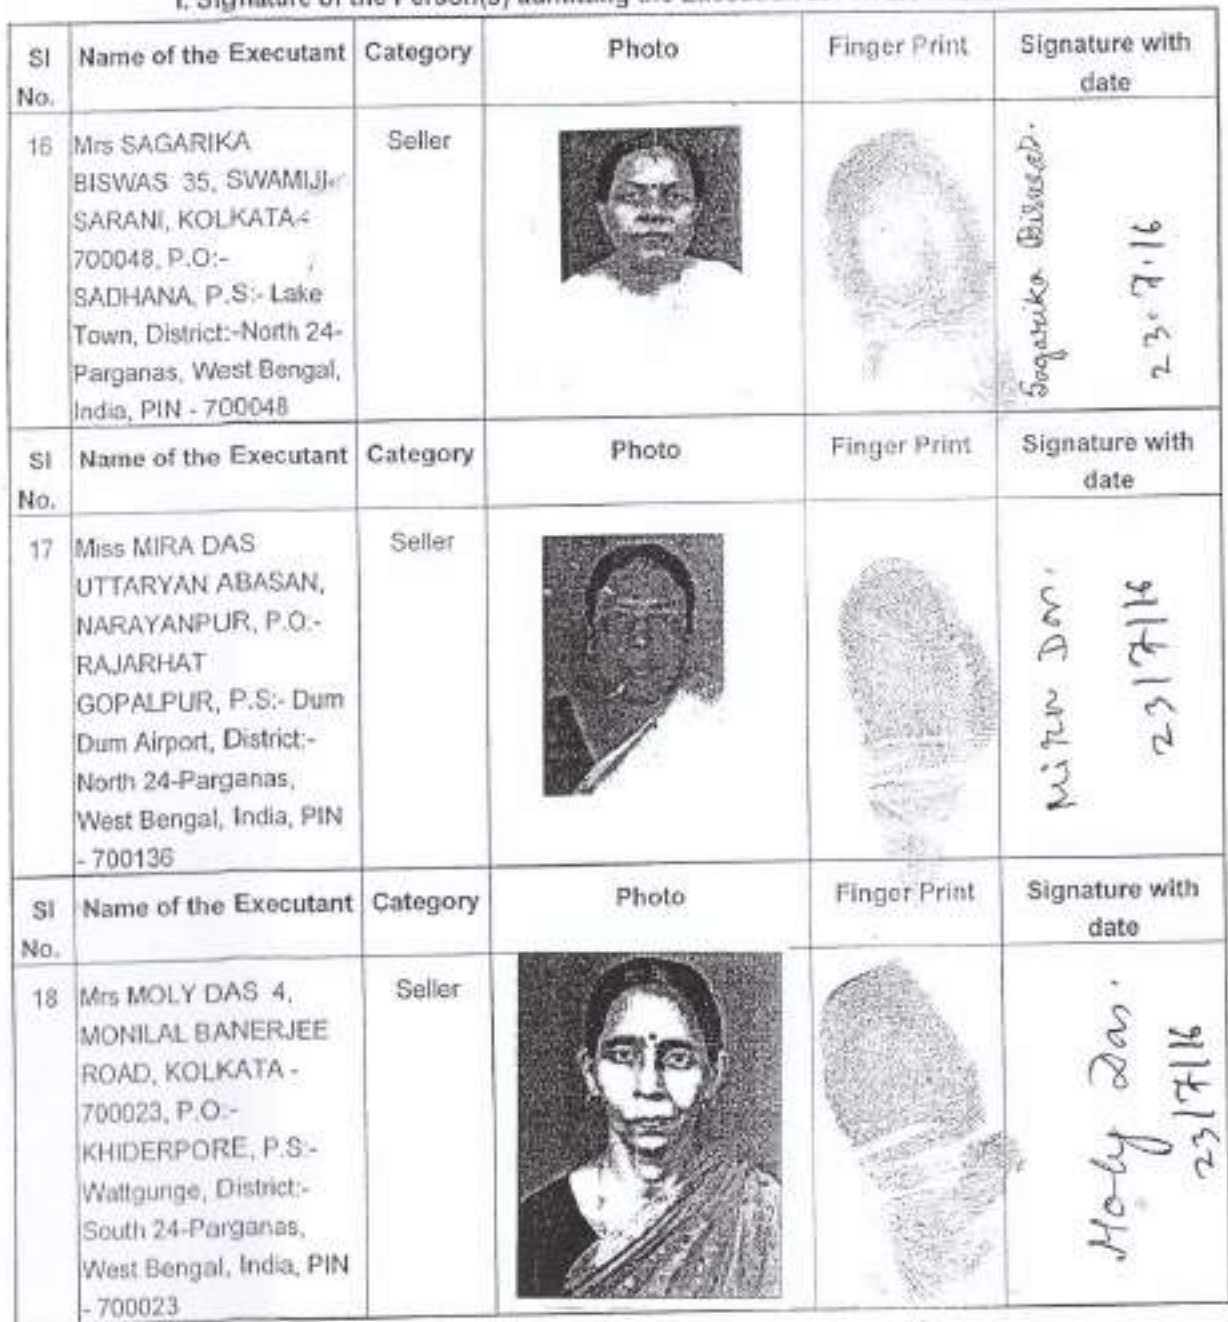 I. Signature of the Person(s) admitting the Execution
Sl No. Name of the Executant Category Photo Finger Print Signature with date
16 Mrs SAGARIKA Seller
BISWAS 35, SWAMIJI
SARANI, KOLKATA-
700048, P.O:-
SADHANA, P.S:- Lake
Town, District:-North 24-
Parganas, West Bengal,
India, PIN - 700048
Sagarika Biswas.
23.7.16
Sl No. Name of the Executant Category Photo Finger Print Signature with date
17 Miss MIRA DAS Seller
UTTARYAN ABASAN,
NARAYANPUR, P.O:-
RAJARHAT
GOPALPUR, P.S:- Dum
Dum Airport, District:-
North 24-Parganas,
West Bengal, India, PIN
- 700136
Mira Das.
23/7/16
Sl No. Name of the Executant Category Photo Finger Print Signature with date
18 Mrs MOLY DAS 4, Seller
MONILAL BANERJEE
ROAD, KOLKATA -
700023, P.O:-
KHIDERPORE, P.S:-
Wattgunge, District:-
South 24-Parganas,
West Bengal, India, PIN
- 700023
Moly Das.
23/7/16